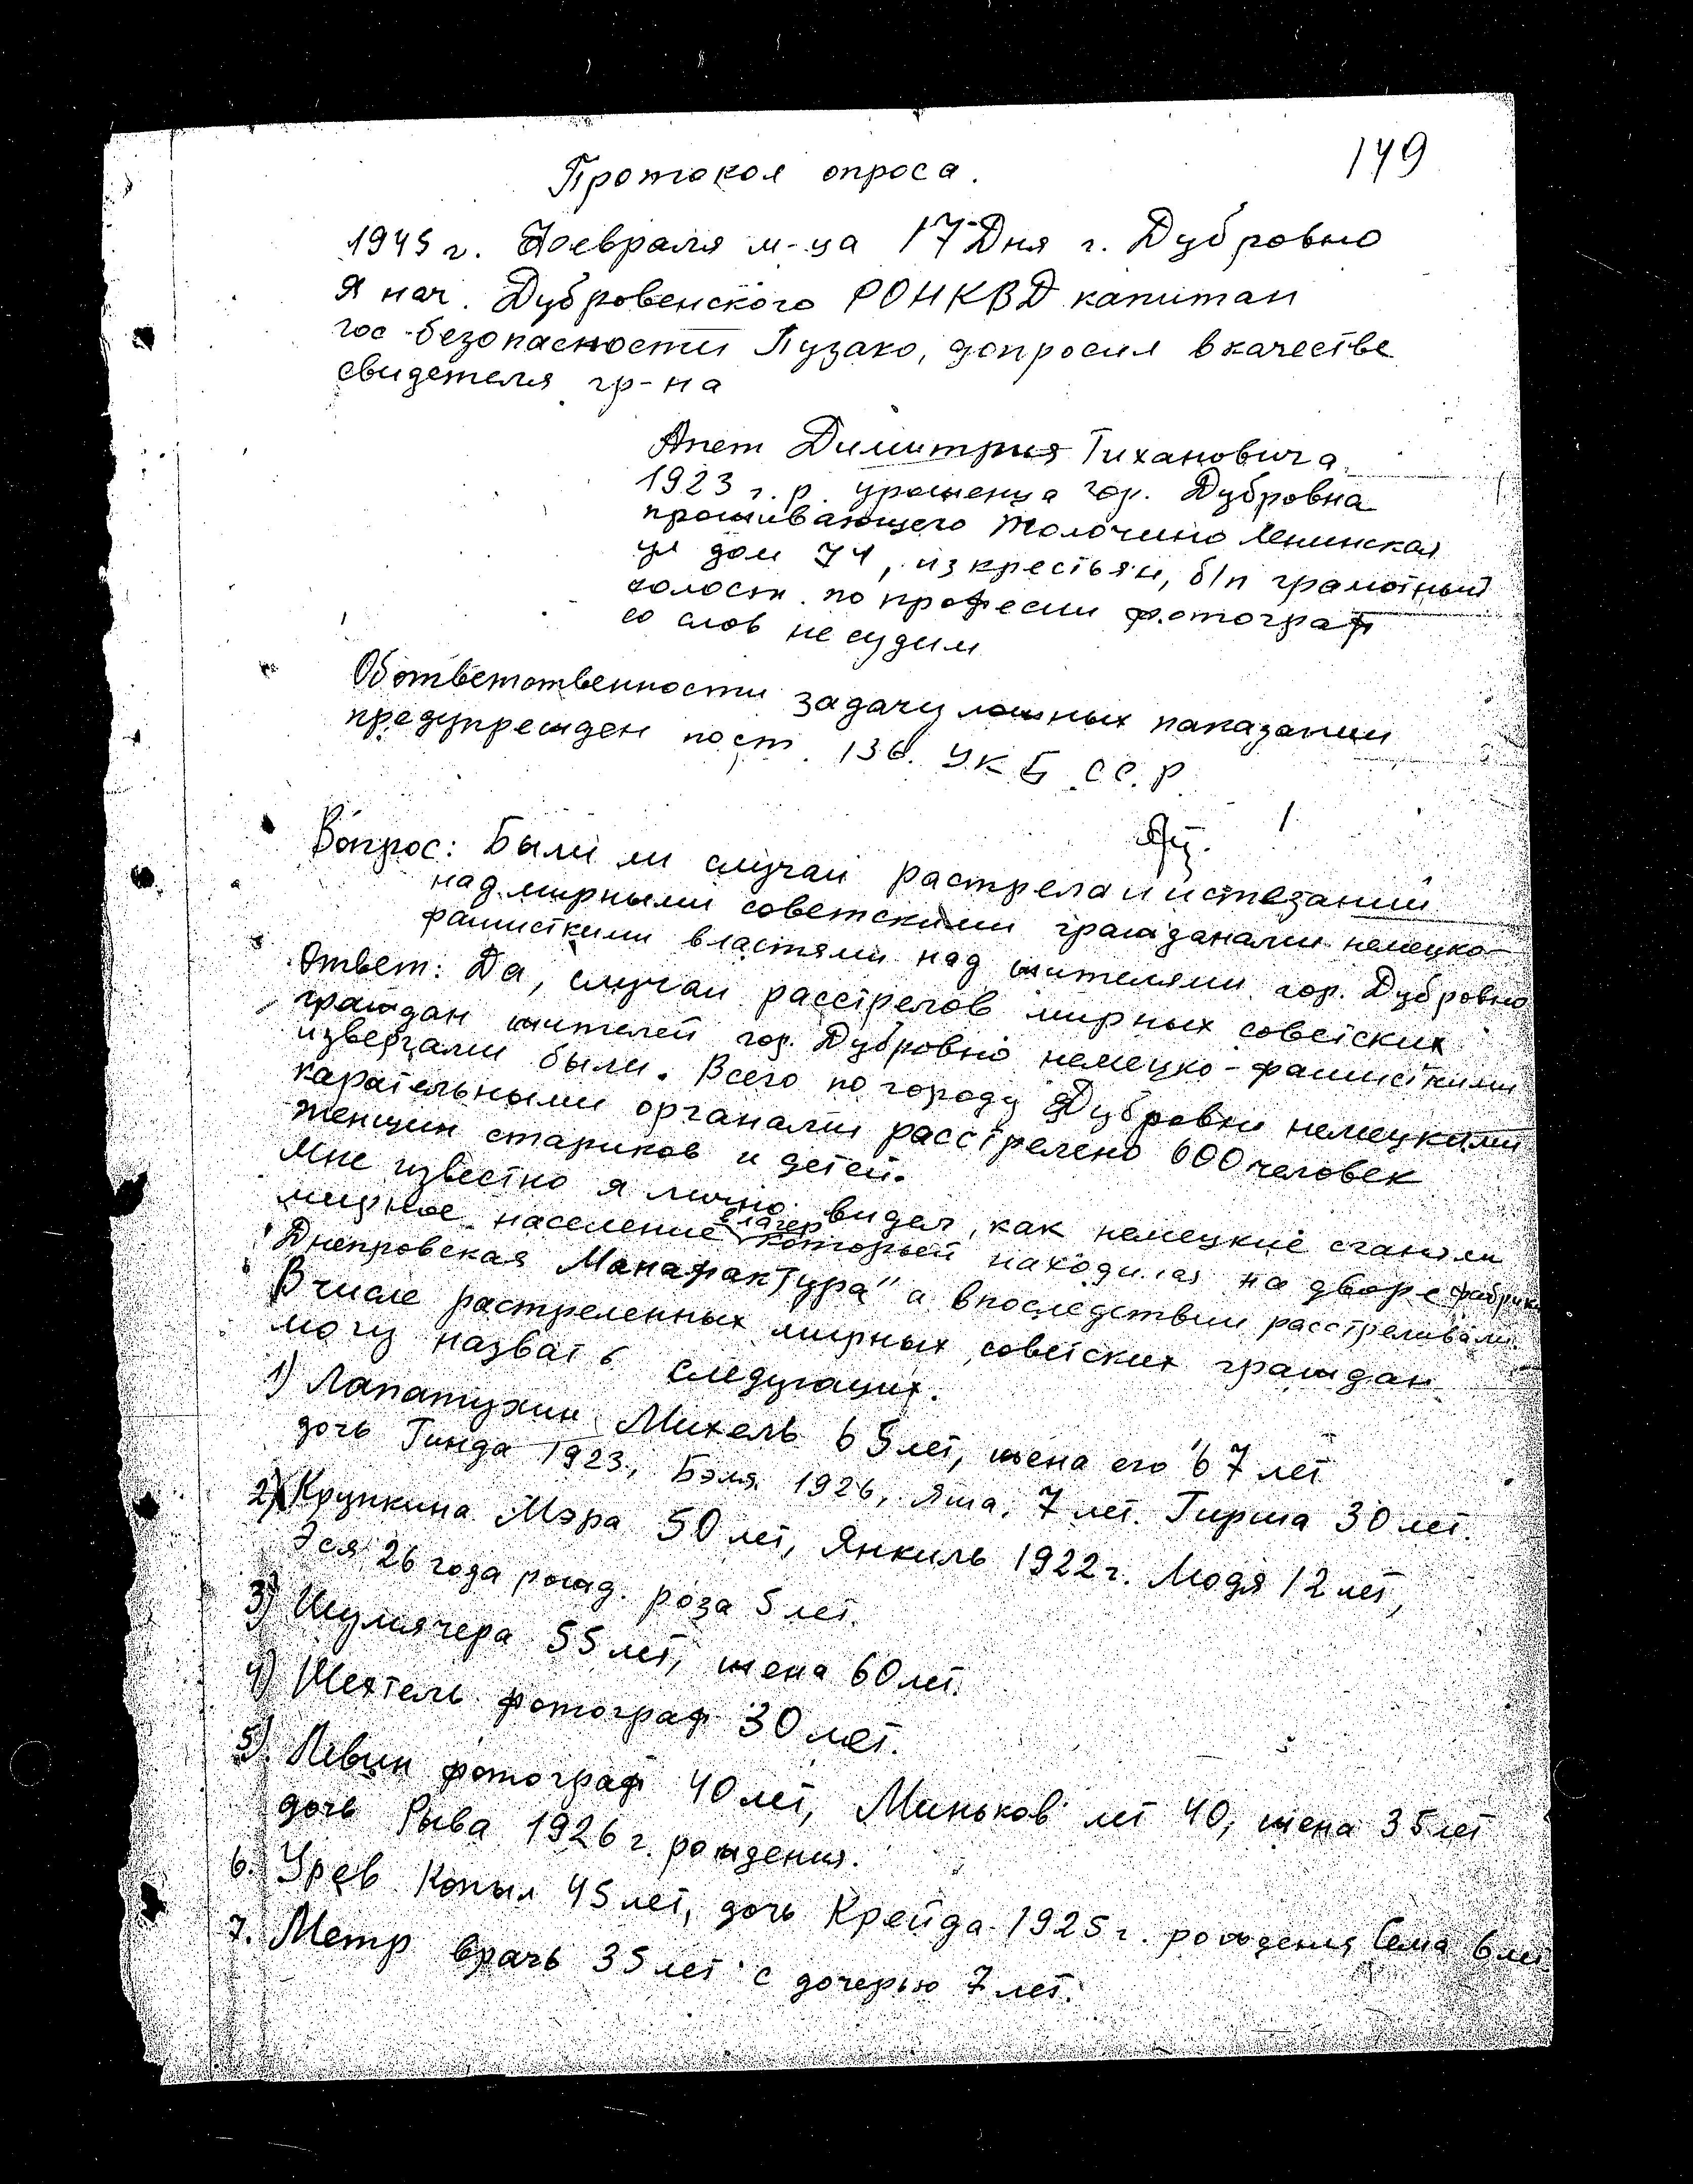 149
Протокол опроса.
1945 г. Февраля м-ца 17 Дня г. Дубровно
Я нач. Дубровенского РОНКВД капитан
гос-безопасности Пузако, допросил в качестве
свидетеля гр-на
Апет Димитрия Тихановича
1923 г.р. уроженца гор. Дубровна
проживающего Толочино Ленинская
ул дом 74, из крестьян, б/п грамотный
холост по професии фотограф
со слов не судим
Об ответственности за дачу ложных паказании
предупрежден по ст. 136. УК БССР.
Вопрос: Были ли случаи растрела и истезаний
над мирными советскими гражданами немецко-
фашисткими властями над жителями гор. Дубровно
Ответ: Да, случаи расстрелов мирных советских
граждан жителей гор. Дубровно немецко-фашисткими
извергами были. Всего по городу Дубровни немецкими
карательными органами расстрелено 600 человек
женщин стариков и детей.
Мне известно я лично видел, как немецкие сганяли
мирное население в лагер который находился на дворе фабрики
"Днепровская Манафактура" а впоследствии расстреливали.
В числе растреленных мирных советских граждан
могу назвать следующих.
1) Лапатухин Михель 65 лет, жена его 67 лет
дочь Гинда 1923, Бэля 1926, Яша 7 лет. Гирша 30 лет.
2) Крупкина Мэра 50 лет, Янкиль 1922 г. Людя 12 лет,
Эся 26 года рожд. роза 5 лет.
3) Шумячера 55 лет, жена 60 лет.
4) Шехтель фотограф 30 лет.
5) Левин фотограф 40 лет, Миньков лет 40, жена 35 лет
дочь Рыва 1926 г. рождения.
6. Урев Копыл 45 лет, дочь Крейда 1925 г. рождения Сема 6 лет
7. Метр врачь 35 лет с дочерью 7 лет.